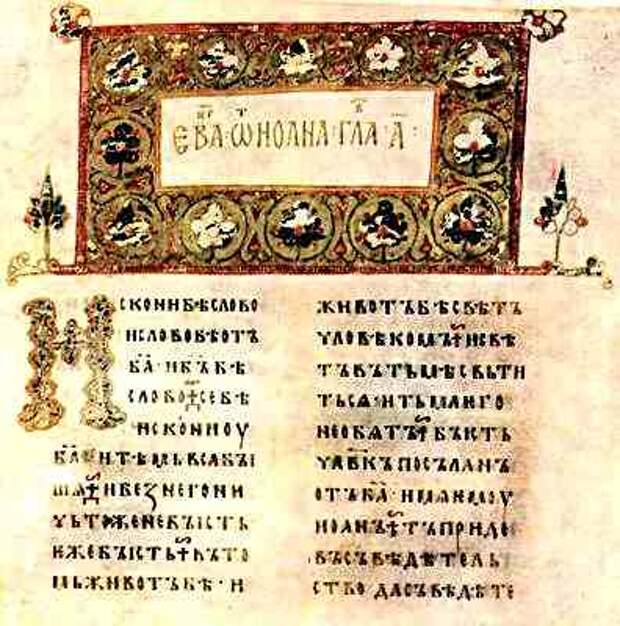 ЕВА҃·ѾИОАНА·ГЛА·А҃·
ИСКОНИБѢСЛОВО
ИСЛОВОБѢОТЪ
БА҃·ИБЪБѢ
СЛОВО⁘СЕБѢ
ИСКОНИОУ
БА҃·ИТѢМЬВСАБЪІ
ШѦ⁘ИБЕЗНЕГОНИ
ЧЬТОЖЕНЕБЪІСТЬ
ѤЖЕБЪІСТЬ⁘ВЪТО
МЬЖИВОТЪБѢ·И
ЖИВОТЪБѢСВѢТЪ
ЧЛОВѢКОМЪ⁘ИСВѢ
ТЪВЪТЬМѢСВЬТИ
ТЬСѦ·ИТЬМАѤГО
НЕОБѦТЪ⁘БЪІСТЬ
ЧЛВ҃КЪПОСЪЛАНЪ
ОТЪБА҃·ИМѦѤМОУ
ИОАНЪ⁘ТЪПРИДЕ
ВЪСЪВѢДѢТЕЛЬ
СТВОДАСЪВѢДѢТЕ